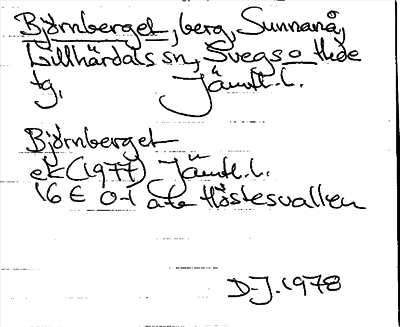 Björnberget, berg, Sunnanå,
Lillhärdals sn, Svegs o Hede
tg, Jämtl. l.
Björnberget
ek (1977) Jämtl. l.
16E 0-1 a-e Höstesvallen
D-J. 1978